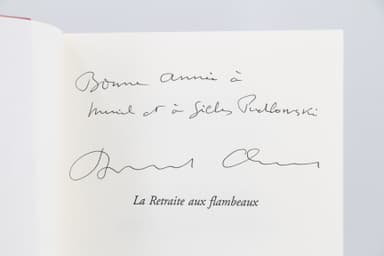 Bonne Année à
Muriel et à Gilles Pudlowski
La Retraite aux flambeaux